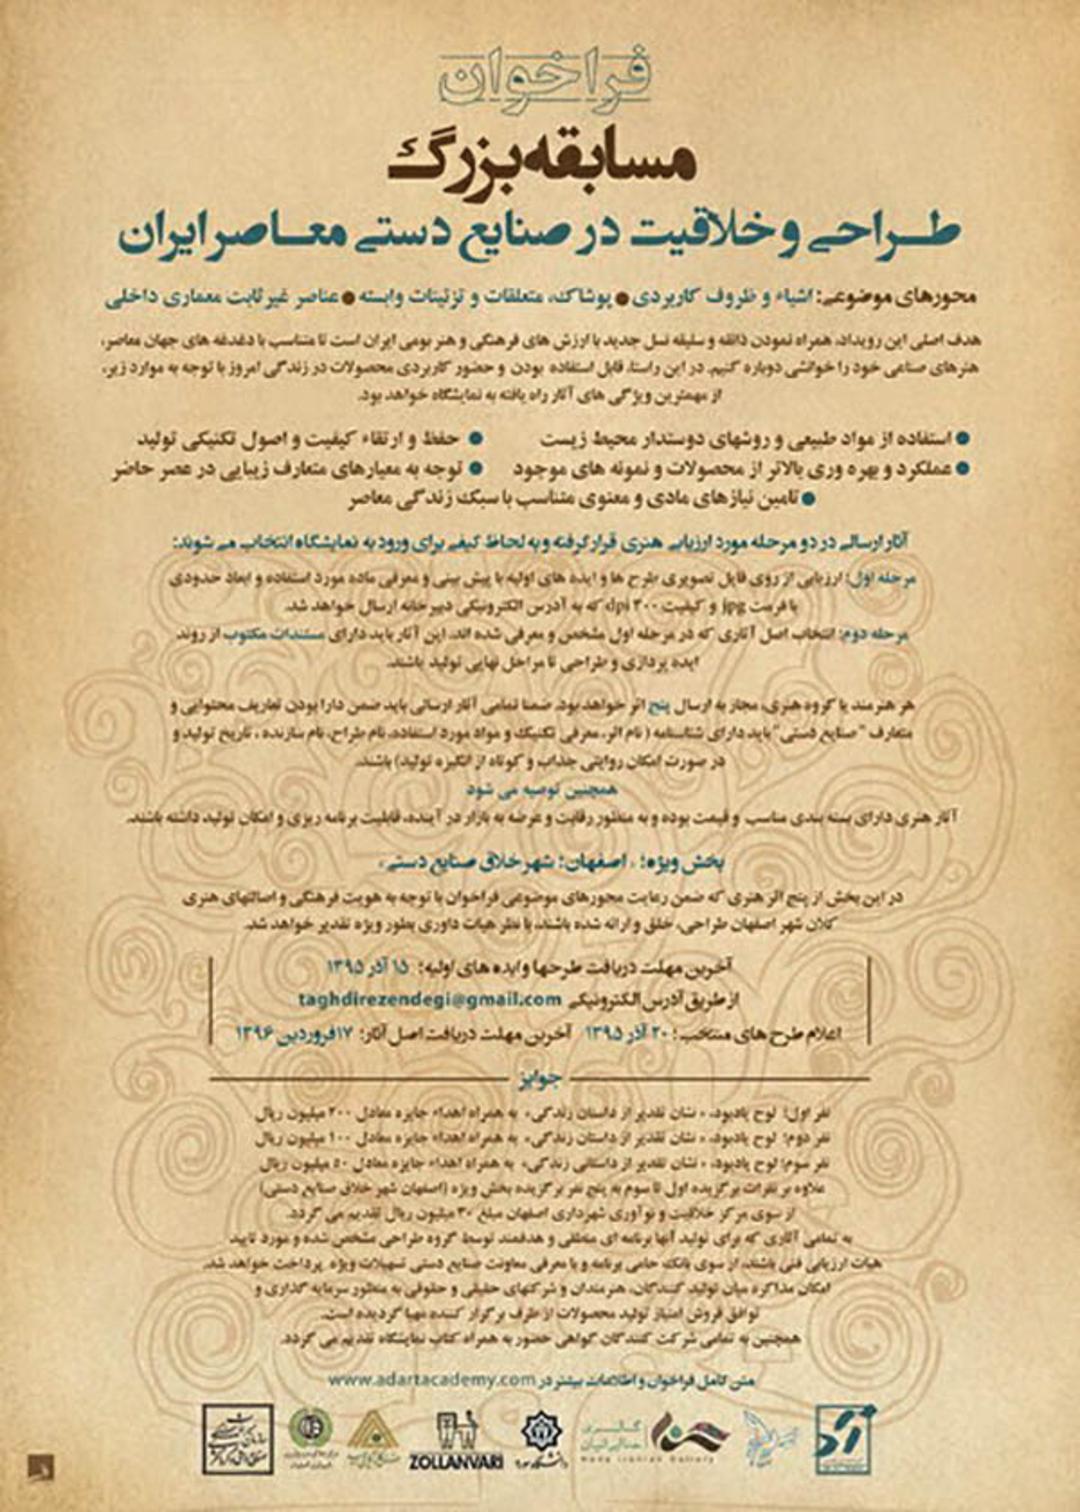 فراخوان
مسابقه بزرگ
طراحی و خلاقیت در صنایع دستی معاصر ایران
محورهای موضوعی: اشیاء و ظروف کاربردی ● پوشاک، متعلقات و تزئینات وابسته ● عناصر غیر ثابت معماری داخلی
هدف اصلی این رویداد، همراه نمودن ذائقه و سلیقه نسل جدید با ارزش های فرهنگی و هنر بومی ایران است تا متناسب با دغدغه های جهان معاصر،
هنرهای صناعی خود را خوانشی دوباره کنیم. در این راستا، قابل استفاده بودن و حضور کاربردی محصولات در زندگی امروز با توجه به موارد زیر،
از مهمترین ویژگی های آثار راه یافته به نمایشگاه خواهد بود.
● استفاده از مواد طبیعی و روشهای دوستدار محیط زیست ● حفظ و ارتقاء کیفیت و اصول تکنیکی تولید
● عملکرد و بهره وری بالاتر از محصولات و نمونه های موجود ● توجه به معیارهای متعارف زیبایی در عصر حاضر
● تامین نیازهای مادی و معنوی متناسب با سبک زندگی معاصر
آثار ارسالی در دو مرحله مورد ارزیابی هنری قرار گرفته و به لحاظ کیفی برای ورود به نمایشگاه انتخاب می شوند:
مرحله اول: ارزیابی از روی فایل تصویری طرح ها و ایده های اولیه با پیش بینی و معرفی ماده مورد استفاده و ابعاد حدودی
با فرمت jpg و کیفیت ۳۰۰ dpi که به آدرس الکترونیکی دبیرخانه ارسال خواهد شد.
مرحله دوم: انتخاب اصل آثاری که در مرحله اول مشخص و معرفی شده اند. این آثار باید دارای مستندات مکتوب از روند
ایده پردازی و طراحی تا مراحل نهایی تولید باشند.
هر هنرمند یا گروه هنری، مجاز به ارسال پنج اثر خواهد بود. ضمنا تمامی آثار ارسالی باید ضمن دارا بودن تعاریف محتوایی و
متعارف "صنایع دستی" باید دارای شناسنامه (نام اثر، معرفی تکنیک و مواد مورد استفاده، نام طراح، نام سازنده، تاریخ تولید و
در صورت امکان روایتی جذاب و کوتاه از انگیزه تولید) باشند.
همچنین توصیه می شود
آثار هنری دارای بسته بندی مناسب و قیمت بوده و به منظور رقابت و عرضه به بازار در آینده، قابلیت برنامه ریزی و امکان تولید داشته باشند.
بخش ویژه: «اصفهان: شهر خلاق صنایع دستی»
در این بخش از پنج اثر هنری که ضمن رعایت محورهای موضوعی فراخوان با توجه به هویت فرهنگی و اصالتهای هنری
کلان شهر اصفهان طراحی، خلق و ارائه شده باشند، با نظر هیات داوری بطور ویژه تقدیر خواهد شد.
آخرین مهلت دریافت طرحها و ایده های اولیه: ۱۵ آذر ۱۳۹۵
از طریق آدرس الکترونیکی taghdirezendegi@gmail.com
اعلام طرح های منتخب: ۲۰ آذر ۱۳۹۵ آخرین مهلت دریافت اصل آثار: ۱۷ فروردین ۱۳۹۶
جوایز
نفر اول: لوح یادبود، «نشان تقدیر از داستان زندگی» به همراه اهداء جایزه معادل ۲۰۰ میلیون ریال
نفر دوم: لوح یادبود، «نشان تقدیر از داستان زندگی» به همراه اهداء جایزه معادل ۱۰۰ میلیون ریال
نفر سوم: لوح یادبود، «نشان تقدیر از داستانی زندگی» به همراه اهداء جایزه معادل ۵۰ میلیون ریال
علاوه بر نفرات برگزیده اول تا سوم به پنج نفر برگزیده بخش ویژه (اصفهان شهر خلاق صنایع دستی)
از سوی مرکز خلاقیت و نوآوری شهرداری اصفهان مبلغ ۳۰ میلیون ریال تقدیم می گردد.
به تمامی آثاری که برای تولید آنها برنامه ای منطقی و هدفمند توسط گروه طراحی مشخص شده و مورد تایید
هیات ارزیابی فنی باشند، از سوی بانک حامی برنامه و با معرفی معاونت صنایع دستی تسهیلات ویژه پرداخت خواهد شد.
امکان مذاکره میان تولید کنندگان، هنرمندان و شرکتهای حقیقی و حقوقی به منظور سرمایه گذاری و
توافق فروش امتیاز تولید محصولات از طرف برگزار کننده مهیا گردیده است.
همچنین به تمامی شرکت کنندگان گواهی حضور به همراه کتاب نمایشگاه تقدیم می گردد.
متن کامل فراخوان و اطلاعات بیشتر در www.adartacademy.com
گالری هنر ایرانیان
ZOLLANVARI